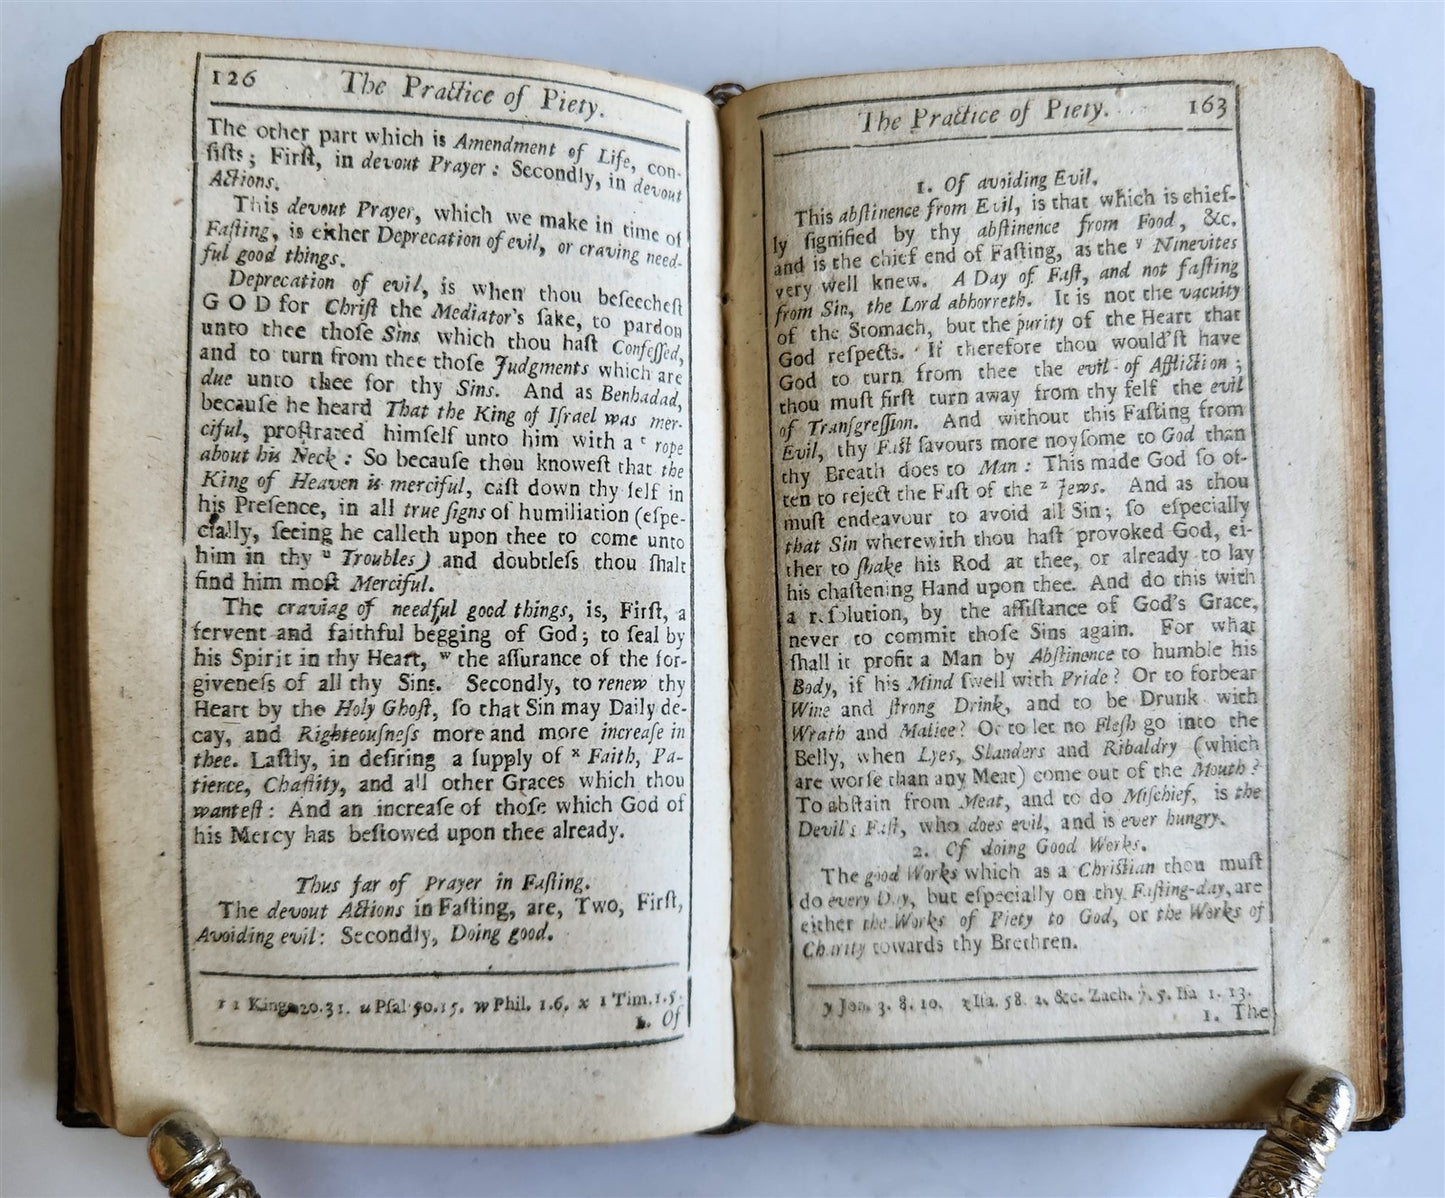 126 The Practice of Piety.
The other part which is Amendment of Life, con-
ſiſts; Firſt, in devout Prayer: Secondly, in devout
Actions.
This devout Prayer, which we make in time of
Faſting, is either Deprecation of evil, or craving need-
ful good things.
Deprecation of evil, is when thou beſeecheſt
GOD for Chriſt the Mediator's ſake, to pardon
unto thee thoſe Sins which thou haſt Confeſſed,
and to turn from thee thoſe Judgments which are
due unto thee for thy Sins. And as Benhadad,
becauſe he heard That the King of Iſrael was mer-
ciful, proſtrated himſelf unto him with a t rope
about his Neck: So becauſe thou knoweſt that the
King of Heaven is merciful, caſt down thy ſelf in
his Preſence, in all true ſigns of humiliation (eſpe-
cially, ſeeing he calleth upon thee to come unto
him in thy u Troubles) and doubtleſs thou ſhalt
find him moſt Merciful.
The craving of needful good things, is, Firſt, a
fervent and faithful begging of God; to ſeal by
his Spirit in thy Heart, w the aſſurance of the for-
giveneſs of all thy Sins. Secondly, to renew thy
Heart by the Holy Ghoſt, ſo that Sin may Daily de-
cay, and Righteouſneſs more and more increaſe in
thee. Laſtly, in deſiring a ſupply of x Faith, Pa-
tience, Chaſtity, and all other Graces which thou
wanteſt: And an increaſe of thoſe which God of
his Mercy has beſtowed upon thee already.
Thus far of Prayer in Faſting.
The devout Actions in Faſting, are, Two, Firſt,
Avoiding evil: Secondly, Doing good.
1 Kings 20. 31. u Pſal 50. 15. w Phil. 1. 6. x 1 Tim. 1. 5.
1. Of
The Practice of Piety. 163
1. Of avoiding Evil.
This abſtinence from Evil, is that which is chief-
ly ſignified by thy abſtinence from Food, &c.
and is the chief end of Faſting, as the y Ninevites
very well knew. A Day of Faſt, and not faſting
from Sin, the Lord abhorreth. It is not the vacuity
of the Stomach, but the purity of the Heart that
God reſpects. If therefore thou would'ſt have
God to turn from thee the evil of Affliction;
thou muſt firſt turn away from thy ſelf the evil
of Tranſgreſſion. And without this Faſting from
Evil, thy Faſt ſavours more noyſome to God than
thy Breath does to Man: This made God ſo of-
ten to reject the Faſt of the z Jews. And as thou
muſt endeavour to avoid all Sin; ſo eſpecially
that Sin wherewith thou haſt provoked God, ei-
ther to ſhake his Rod at thee, or already to lay
his chaſtening Hand upon thee. And do this with
a reſolution, by the aſſiſtance of God's Grace,
never to commit thoſe Sins again. For what
ſhall it profit a Man by Abſtinence to humble his
Body, if his Mind ſwell with Pride? Or to forbear
Wine and ſtrong Drink, and to be Drunk with
Wrath and Malice? Or to let no Fleſh go into the
Belly, when Lyes, Slanders and Ribaldry (which
are worſe than any Meat) come out of the Mouth?
To abſtain from Meat, and to do Miſchief, is the
Devil's Faſt, who does evil, and is ever hungry.
2. Of doing Good Works.
The good Works which as a Chriſtian thou muſt
do every Day, but eſpecially on thy Faſting-day, are
either the Works of Piety to God, or the Works of
Charity towards thy Brethren.
y Jon. 3. 8. 10. z Iſa. 58. 2. &c. Zach. 7. 5. Iſa 1. 13.
1. The